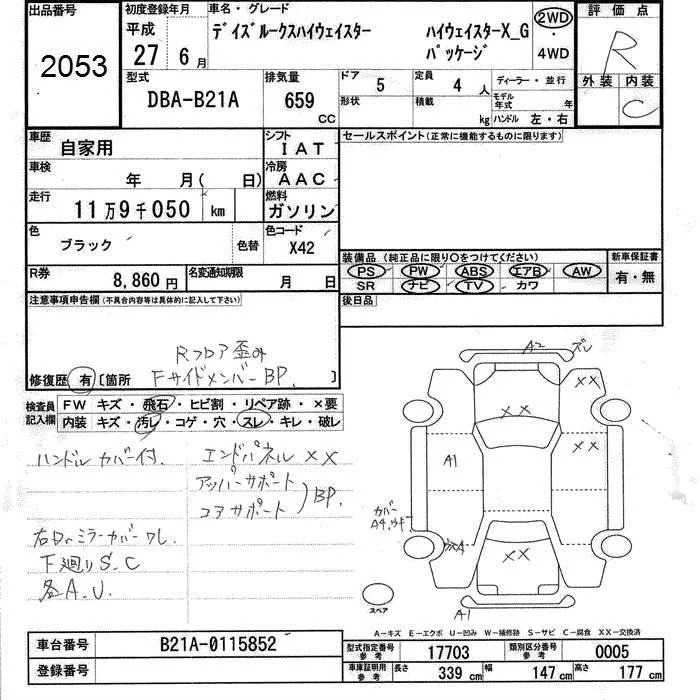 出品番号 初度登録年月 車名・グレード 評価点
2053
平成 27 6月
デイズルークスハイウェイスター ハイウェイスターX_G パッケージ
2WD ・ 4WD
R
外装 内装
C
型式 DBA-B21A
排気量 659 CC
ドア 5 定員 4 人
形状 積載 kg
ディーラー・並行
モデル年式 年
ハンドル 左・右
車歴 自家用
シフト IAT
セールスポイント(正常に機能するものに限ります)
車検 年 月( 日)
冷房 AAC
走行 11万9千050 km
燃料 ガソリン
色 ブラック 色替
色コード X42
装備品 (純正品に限り○をつけてください)
PS PW ABS エアB AW
SR ナビ TV カワ
新車保証書 有・無
R券 8,860円 名変通知期限 月 日
後日品
注意事項申告欄(不具合内容等は具体的に記入して下さい)
Rフロア歪み
修復歴 有 〔箇所 FサイドメンバーBP. 〕
検査員記入欄
FW キズ・飛石・ヒビ割・リペア跡・×要
内装 キズ・汚れ・コゲ・穴・スレ・キレ・破レ
ハンドルカバー付. エンドパネル ××
アッパーサポート
コアサポート
BP.
右ドアミラーカバーワレ.
下廻りS.C
各A.U.
A2 ズレ
××
××
××
A1
カバー
A4.ウキ
××
A1
スペア
A-キズ E-エクボ U-凹み W-補修跡 S-サビ C-腐食 XX-交換済
車台番号 B21A-0115852
型式指定番号 参考 17703 類別区分番号 参考 0005
登録番号
車庫証明用 参考 長さ 339 cm 幅 147 cm 高さ 177 cm